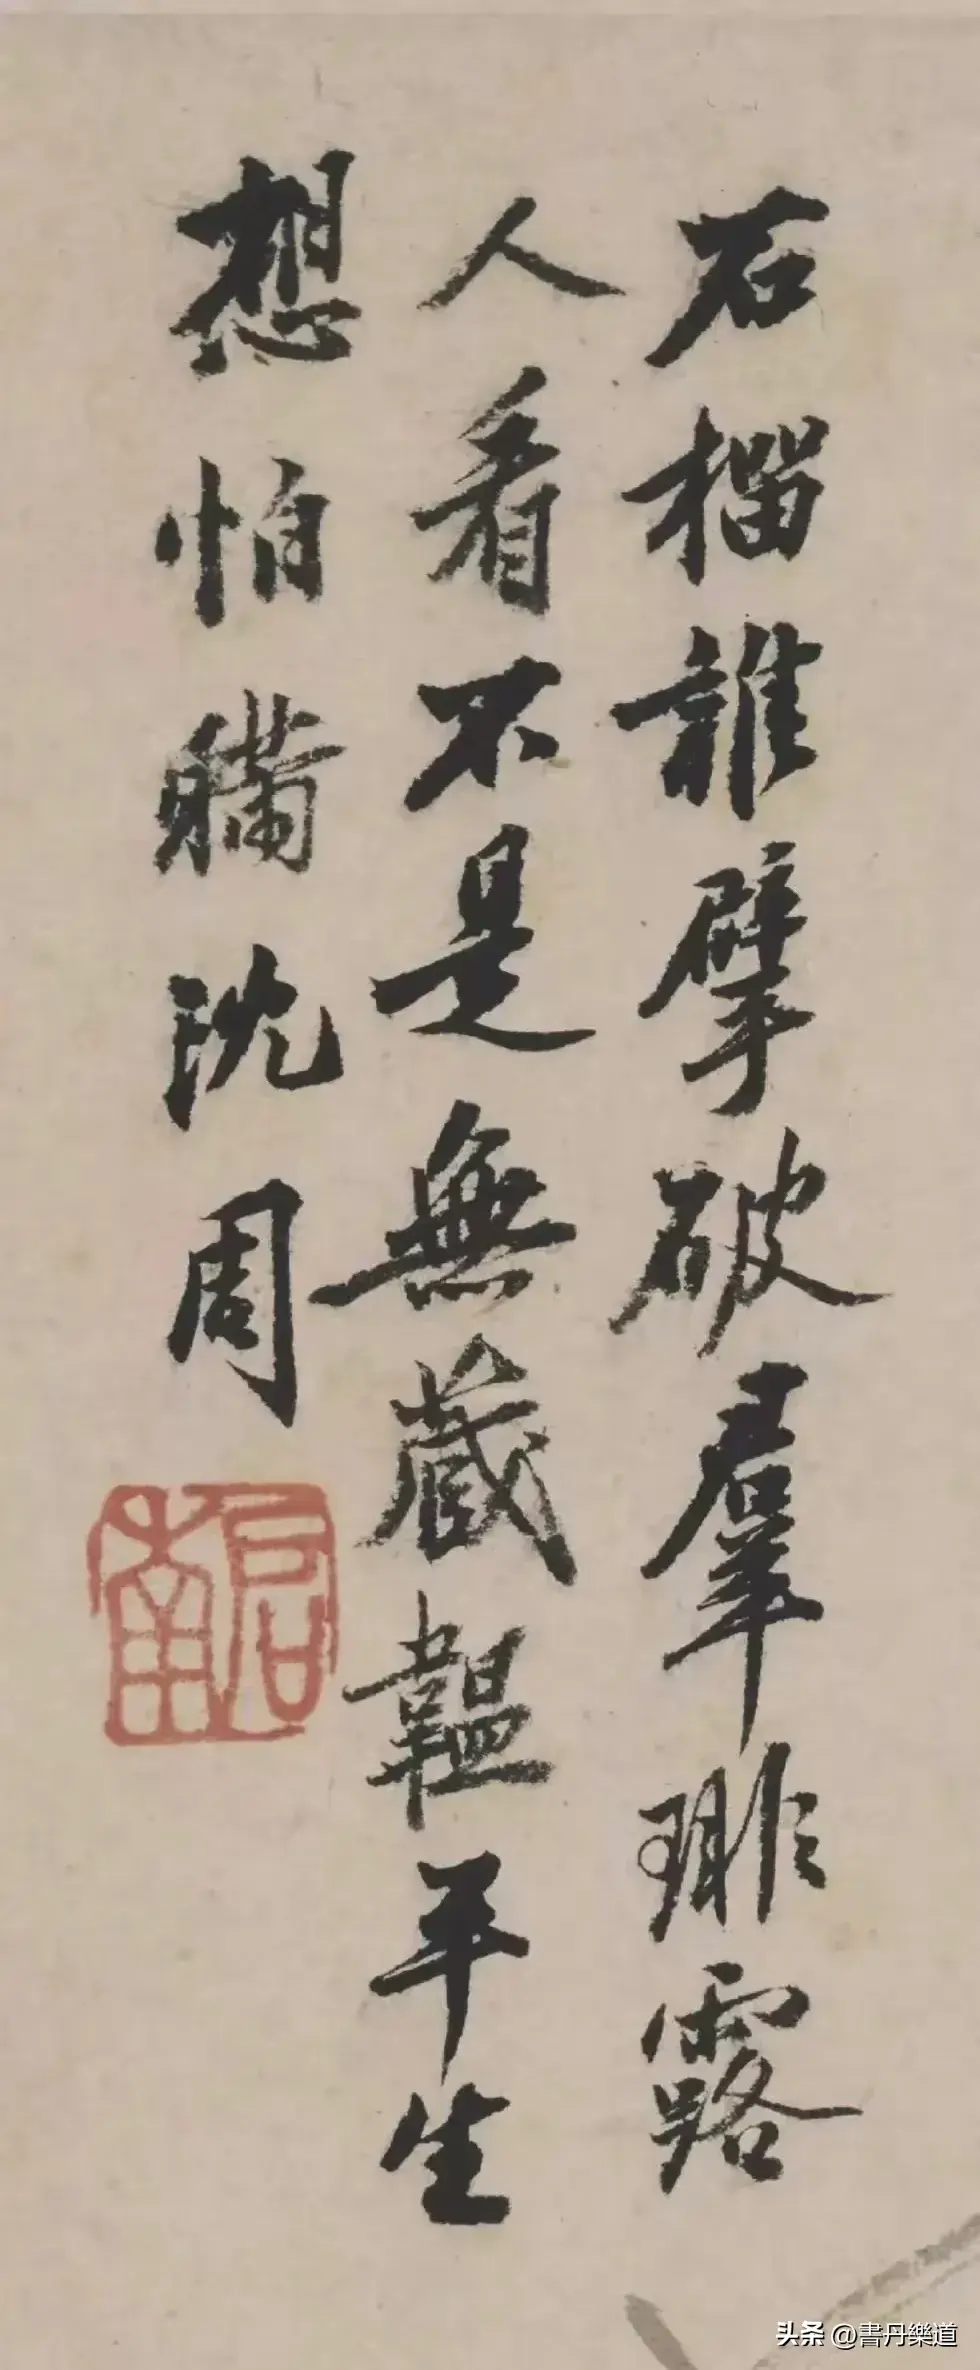 石榴誰擘破羣琲露
人看不是無藏韞平生
想怕瞞沈周
启南
头条 @書丹樂道